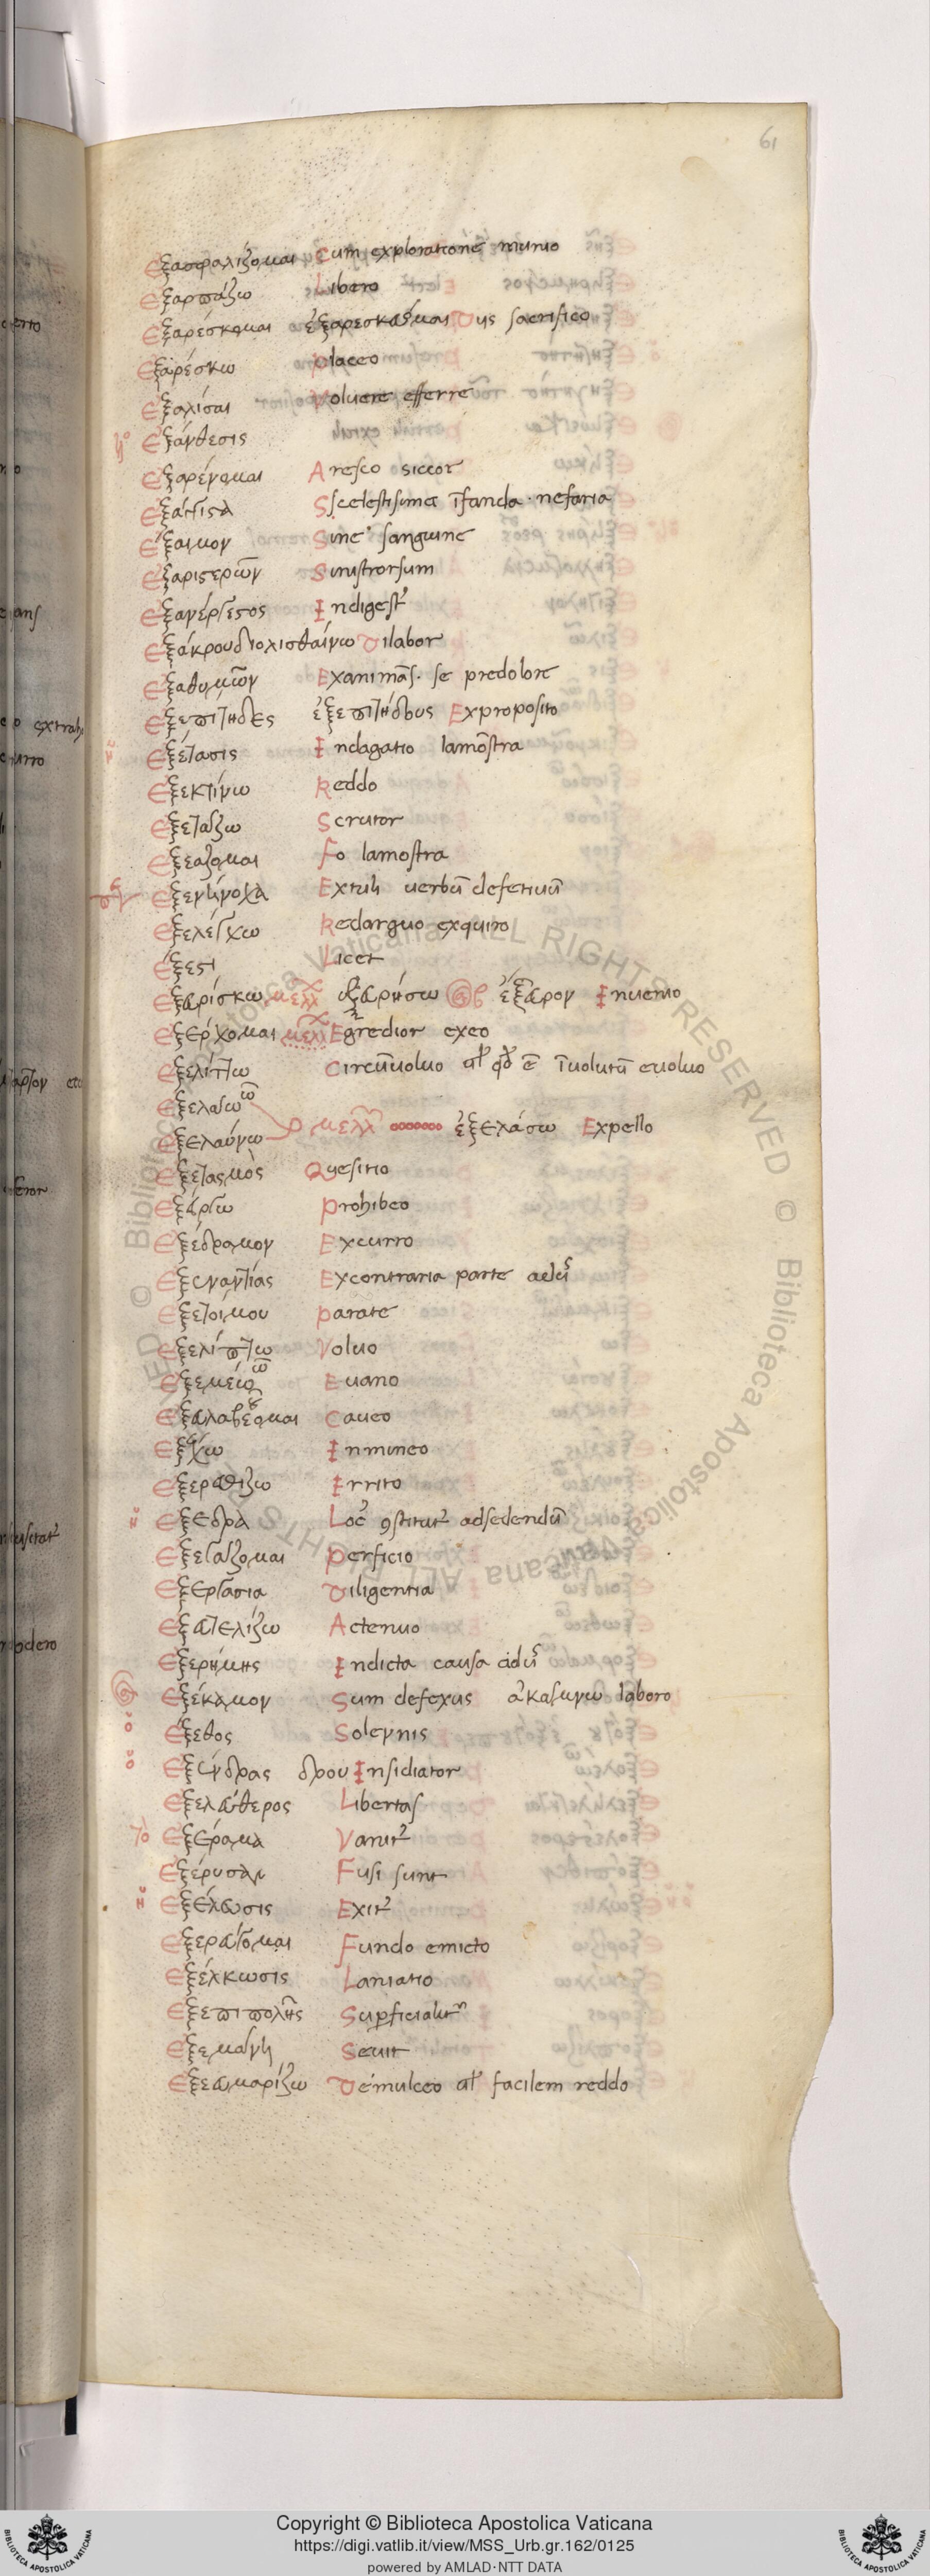 61
Εξασφαλίζομαι Cum exploratione munio
Εξαρπάζω Libero
Εξαρέσκομαι ἐξαρεσκεύομαι Diis sacrifico
Εξαρέσκω placeo
Εξαλίσαι Voluere efferre
Εξάνθεσις
Εξαρένομαι Aresco siccor
Εξάγιστα Sscelestissima īfanda · nefaria
Εξαιμον Sine sanguine
Εξαριστερῶν Sinistrorsum
Εξανέργεστος Indigest᾽
Εξάκρου διολισθαίνω Dilabor
Εξαθυμῶν Examinās · se predolore
Εξεπίτηδες ἐξεπιτήδους Exproposito
Εξέτασις Indagatio lamōstra
Εξεκτίνω Reddo
Εξετάζω Scrutor
Εξεάζομαι Fo lamostra
Εξενήνοχα Extuli uerbū defetiuū
Εξελέγχω Redarguo exquiro
Εξεστι Licet
Εξευρίσκω μελλ ἐξευρήσω ἐξεῦρον Inuenio
Εξέρχομαι μελλ Egredior exeo
Εξελίττω Circūuoluo al᾽ qd ē īuolutū euoluo
Εξελάω ῶ
Εξελαύνω ὁ μελλ ἐξελάσω Expello
Εξετασμὸς Quesitio
Εξείργω Prohibeo
Εξέδραμον Excurro
Εξεναντίας Excontraria parte
Εξετοίμου parate
Εξελίπτω Voluo
Εξεμέω ῶ Euano
Εξευλαβέομαι Caueo
Εξέχω Inmineo
Εξερεθίζω Irrito
Εξεδρα Loc᾽ ꝯstitut᾽ adsedendū
Εξεργάζομαι Perficio
Εξεργασια Diligentia
Εξευτελίζω Actenuo
Εξερήμης Indicta causa
Εξέκαμον Sum defexus laboro
Εξεθος Solepnis
Εξενέδρας δρου Insidiator
Εξελεύθερος Libertas
Εξέραμα Vomit᾽
Εξέρυσαν Fusi sunt
Εξέλευσις Exit᾽
Εξερεύγομαι Fundo emicto
Εξέλκωσις Laniatio
Εξεπιπολῆς Suꝑficialit᾽
Εξεμάνη Seuit
Εξευμαρίζω Demulceo al᾽ facilem reddo
Copyright © Biblioteca Apostolica Vaticana
https://digi.vatlib.it/view/MSS_Urb.gr.162/0125
powered by AMLAD·NTT DATA